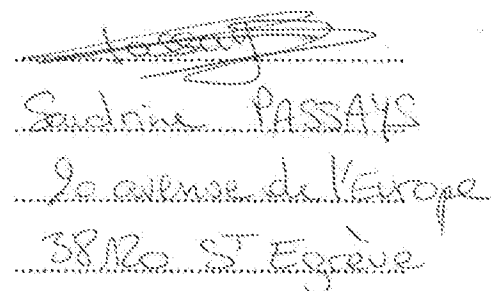 Passays
Sandrine PASSAYS
20 avenue de l'Europe
38120 ST Egrève